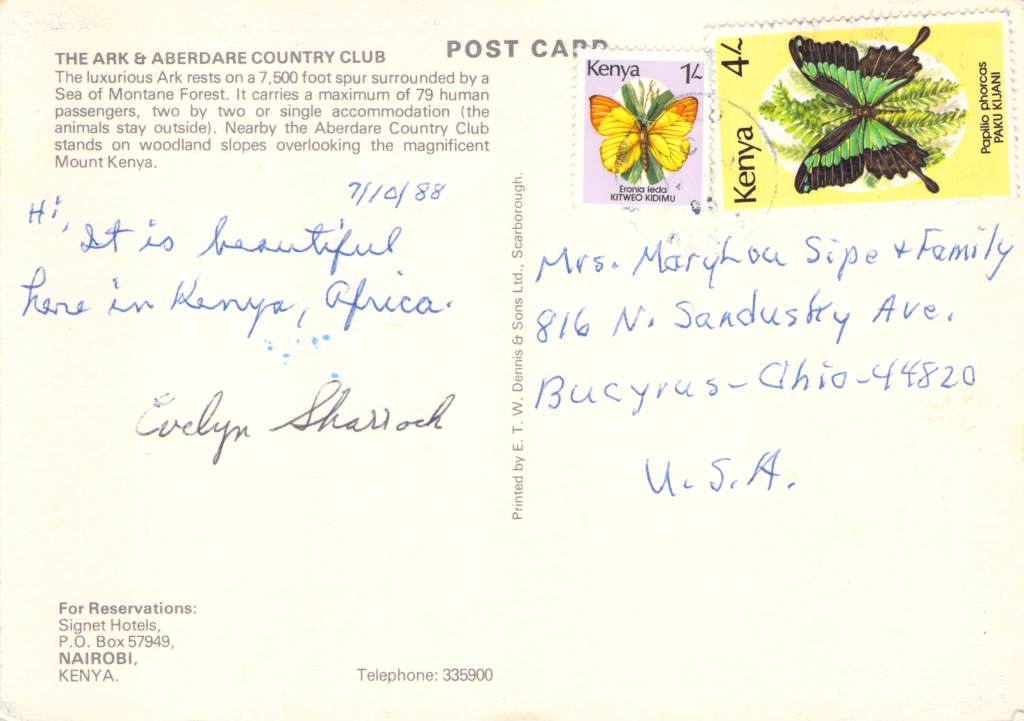 POST CARD
THE ARK & ABERDARE COUNTRY CLUB
The luxurious Ark rests on a 7,500 foot spur surrounded by a
Sea of Montane Forest. It carries a maximum of 79 human
passengers, two by two or single accommodation (the
animals stay outside). Nearby the Aberdare Country Club
stands on woodland slopes overlooking the magnificent
Mount Kenya.
7/10/88
Hi,
It is beautiful
here in Kenya, Africa.
Evelyn Sharrock
For Reservations:
Signet Hotels,
P.O. Box 57949,
NAIROBI,
KENYA.
Telephone: 335900
Printed by E. T. W. Dennis & Sons Ltd., Scarborough.
Kenya 1/-
Eronia leda
KITWEO KIDIMU
Kenya 4/-
Papilio phorcas
PAKU KIJANI
Mrs. MaryLou Sipe & Family
816 N. Sandusky Ave.
Bucyrus - Ohio - 44820
U.S.A.